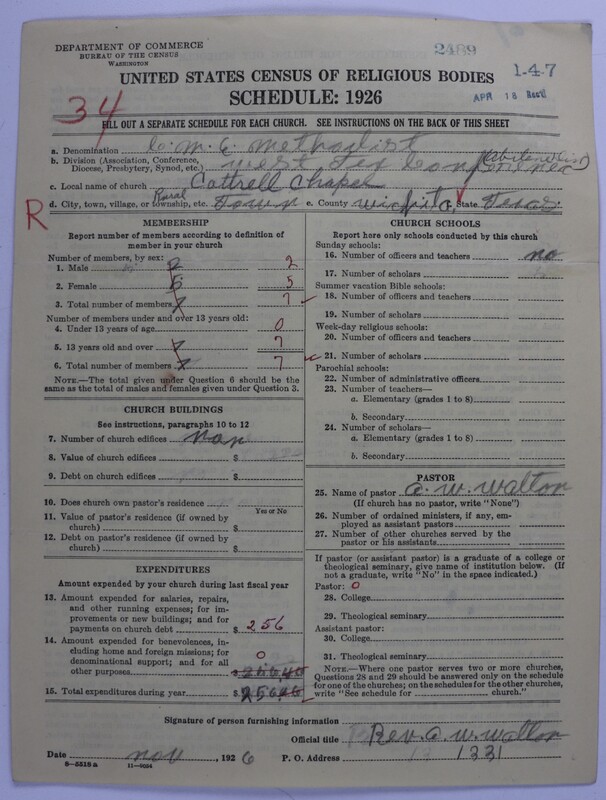 DEPARTMENT OF COMMERCE
BUREAU OF THE CENSUS
WASHINGTON
2489
1-4-7
APR 18
UNITED STATES CENSUS OF RELIGIOUS BODIES
SCHEDULE: 1926
34
FILL OUT A SEPARATE SCHEDULE FOR EACH CHURCH. SEE INSTRUCTIONS ON THE BACK OF THIS SHEET
a. Denomination C. M. E. Methodist
b. Division (Association, Conference, Diocese, Presbytery, Synod, etc.) West Tex Conference
c. Local name of church Cottrell Chapel
d. City, town, village, or township, etc. Rural Town e. County Wichita State Texas
R
MEMBERSHIP
Report number of members according to definition of member in your church
Number of members, by sex:
1. Male 2 2
2. Female 5 5
3. Total number of members 7 7
Number of members under and over 13 years old:
4. Under 13 years of age 0
5. 13 years old and over 7 7
6. Total number of members 7 7
NOTE.—The total given under Question 6 should be the same as the total of males and females given under Question 3.
CHURCH BUILDINGS
See instructions, paragraphs 10 to 12
7. Number of church edifices non
8. Value of church edifices $
9. Debt on church edifices $
10. Does church own pastor's residence
Yes or No
11. Value of pastor's residence (if owned by church) $
12. Debt on pastor's residence (if owned by church) $
EXPENDITURES
Amount expended by your church during last fiscal year
13. Amount expended for salaries, repairs, and other running expenses; for improvements or new buildings; and for payments on church debt $ 256
14. Amount expended for benevolences, including home and foreign missions; for denominational support; and for all other purposes 0 $
15. Total expenditures during year $ 256
CHURCH SCHOOLS
Report here only schools conducted by this church
Sunday schools:
16. Number of officers and teachers no
17. Number of scholars
Summer vacation Bible schools:
18. Number of officers and teachers
19. Number of scholars
Week-day religious schools:
20. Number of officers and teachers
21. Number of scholars
Parochial schools:
22. Number of administrative officers
23. Number of teachers—
a. Elementary (grades 1 to 8)
b. Secondary
24. Number of scholars—
a. Elementary (grades 1 to 8)
b. Secondary
PASTOR
25. Name of pastor a. w. walton
(If church has no pastor, write "None")
26. Number of ordained ministers, if any, employed as assistant pastors
27. Number of other churches served by the pastor or his assistants
If pastor (or assistant pastor) is a graduate of a college or theological seminary, give name of institution below. (If not a graduate, write "No" in the space indicated.)
Pastor: 0
28. College
29. Theological seminary
Assistant pastor:
30. College
31. Theological seminary
NOTE.—Where one pastor serves two or more churches, Questions 28 and 29 should be answered only on the schedule for one of the churches; on the schedules for the other churches, write "See schedule for church."
Signature of person furnishing information
Official title Rev. a. w. walton
Date nov 1926 P. O. Address 1331
8—5518 a 11—9054